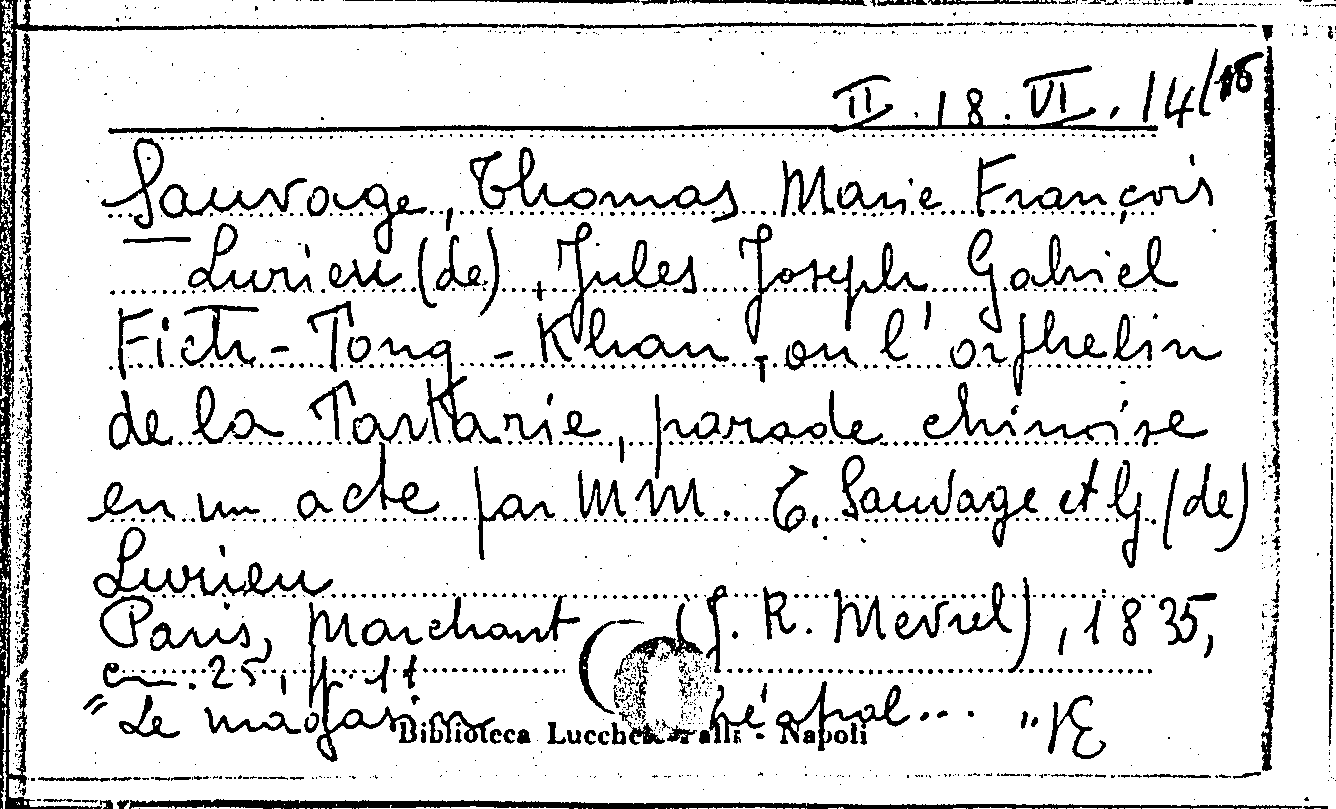 II. 18. VI. 14/18
Sauvage, Thomas Marie François
Lurieu (de), Jules Joseph Gabriel
Fich-Tong-Khan, ou l'orphelin
de la Tartarie, parade chinoise
en un acte par MM. T. Sauvage et G. (de)
Lurieu
Paris, Marchant (J. R. Mevrel), 1835,
cm. 25, p. 11
"Le magasin théatral... "
Biblioteca Lucchesi Palli - Napoli